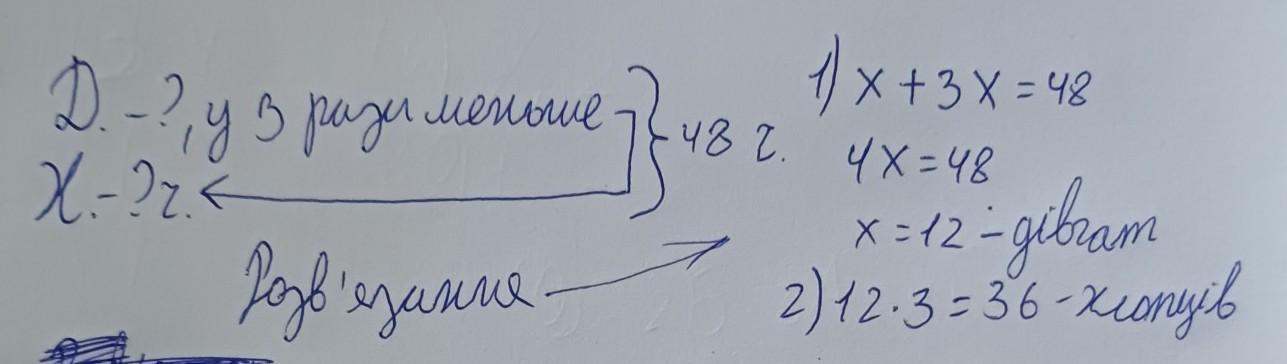 Д. -?, у 3 рази меньше } 48 г.
Х. -? г.
Розв'язання
1) x + 3x = 48
4x = 48
x = 12 - дівчат
2) 12 · 3 = 36 - хлопців